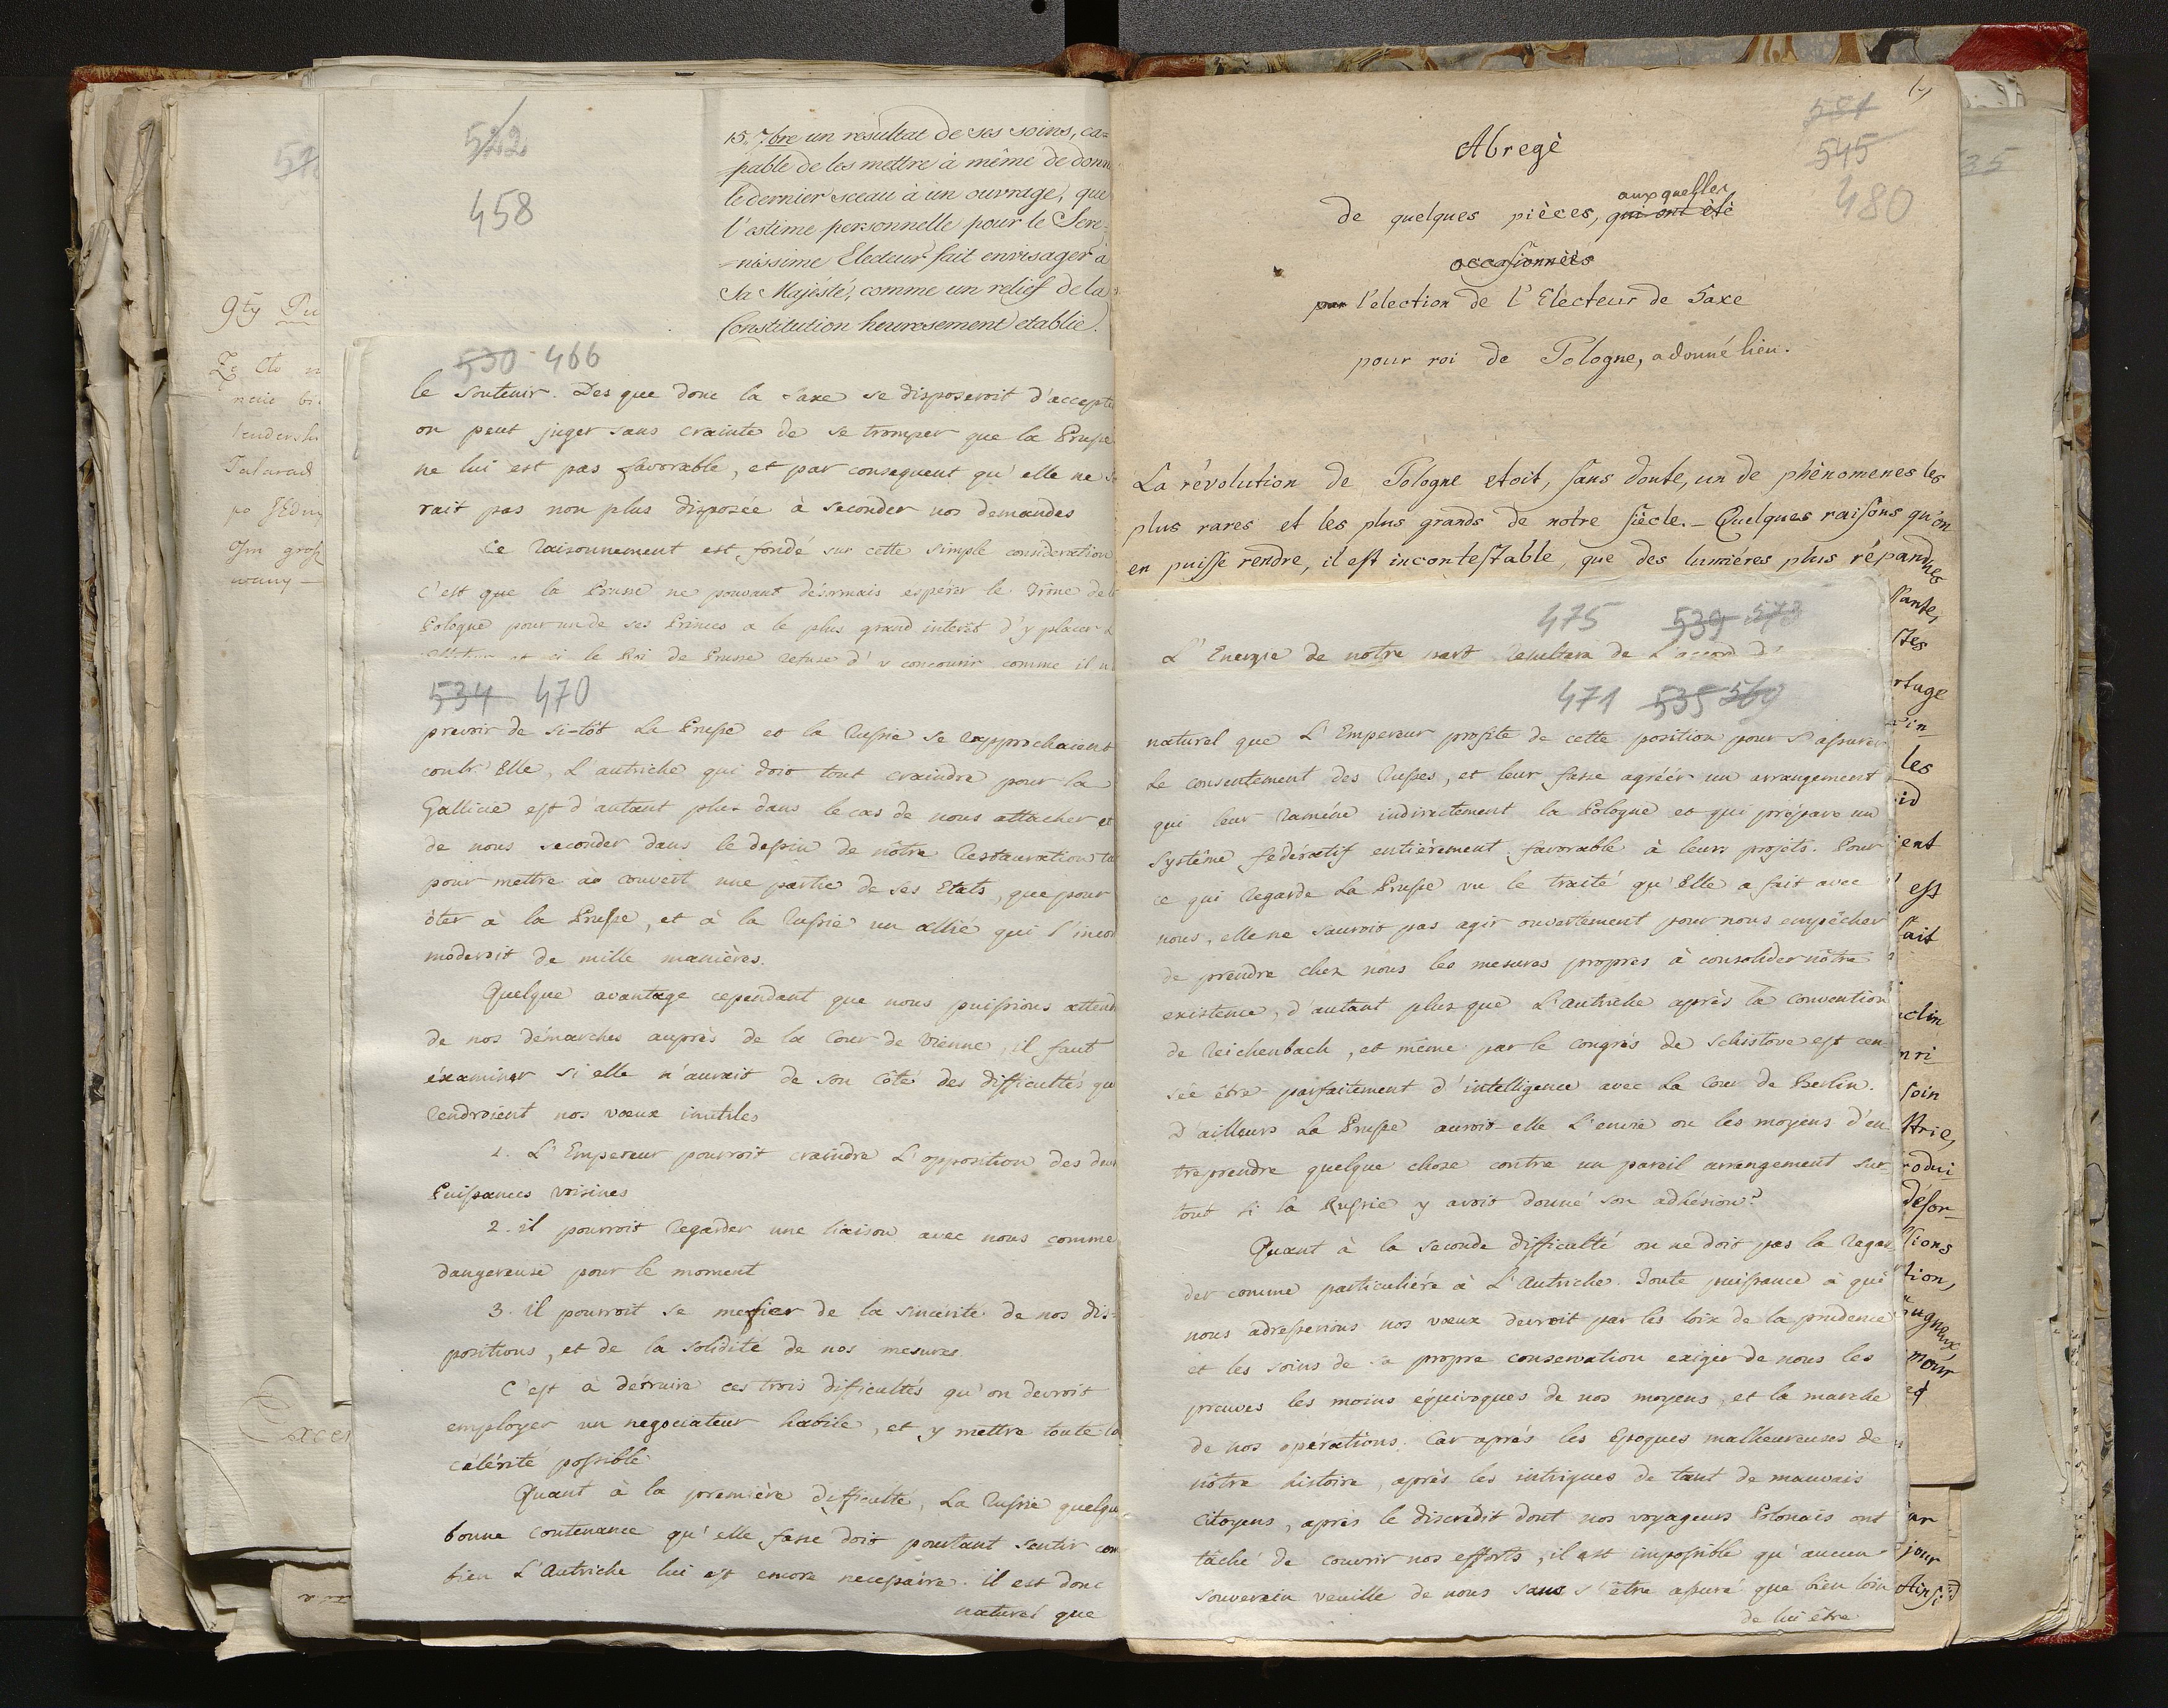 522
458
15. 7bre un resultat de ses soins, ca=
pable de les mettre à même de donn
le dernier sceau à un ouvrage, que
l'estime personnelle pour le Sere=
nissime Electeur fait envisager à
Sa Majesté, comme un relief de la
Constitution heureusement etablie.
530 466
le soutenir. Des que donc la Saxe se disposeroit d'accepte
on peut juger sans crainte de se tromper que la Prusse
ne lui est pas favorable, et par consequent qu'elle ne s
rait pas non plus disposée à seconder nos demandes
Ce raisonnement est fondé sur cette simple consideration
c'est que la Prusse ne pouvant désormais espérer le trône de
Pologne pour un de ses Princes a le plus grand interêt d'y placer
si le Roi de Prusse refuse d'y concourir comme il
534 470
prevoir de si-tôt La Prusse et la Russie se rapprochaient
contr'Elle, L'autriche qui doit tout craindre pour la
Gallicie est d'autant plus dans le cas de nous attacher et
de nous seconder dans le dessein de nôtre restauration ta
pour mettre à couvert une partie de ses Etats, que pour
ôter à la Prusse, et à la Russie un allié qui l'inco
moderoit de mille manières.
Quelque avantage cependant que nous puissions attend
de nos démarches auprès de la Cour de Vienne, il faut
éxaminer si elle n'auroit de son côté des difficultés qu
rendroient nos voeux inutiles
1. L'Empereur pourroit craindre L'opposition des deu
Puissances voisines
2. il pourroit regarder une liaison avec nous comme
dangereuse pour le moment
3. il pourroit se mefier de la sincérité de nos dis=
positions, et de la solidité de nos mesures.
C'est à détruire ces trois dificultés qu'on devroit
employer un negociateur habile, et y mettre toute la
célérité possible.
Quant à la première difficulté, La Russie quelqu
bonne contenance qu'elle fasse doit pourtant sentir com
bien L'Autriche lui est encore necessaire. il est donc
naturel que
581
545
480
Abregè
de quelques pièces, qui ont été auxquelles
occasionnées
par l'election de l'Electeur de Saxe
pour roi de Pologne, a donné lieu.
La révolution de Pologne etoit, sans doute, un de phènomenes les
plus rares et les plus grands de notre siècle. – Quelques raisons qu'on
en puisse rendre, il est incontestable, que des lumiéres plus répandues
475 539
L'Energie de notre part resultera de L'accord d
471 535 569
naturel que L'Empereur profite de cette position pour s'assurer
Le consentement des Russes, et leur fasse agréér un arrangement
qui leur raméne indirectement la Pologne et qui prépare un
système fedératif entièrement favorable à leurs projets. Pour
ce qui regarde La Prusse vu le traité qu'Elle a fait avec
nous, elle ne sauroit pas agir ouvertement pour nous empêcher
de prendre chez nous les mesures propres à consolider nôtre
existence, d'autant plus que L'Autriche après la convention
de Reichenbach, et même par le congrès de Schistove est cen
sée être parfaitement d'intelligence avec La Cour de Berlin.
D'ailleurs La Prusse auroit-elle L'envie ou les moyens d'en
treprendre quelque chose contre un pareil arrangement sur
tout si la Russie y avoit donné son adhésion?
Quant à la seconde difficulté on ne doit pas la regar
der comme particuliére à L'Autriche. Toute puissance à qui
nous adresserions nos voeux devroit par les loix de la prudence
et les soins de sa propre conservation exiger de nous les
preuves les moins équivoques de nos moyens, et la marche
de nos opérations. Car aprés les époques malheureuses de
nôtre histoire, après les intrigues de tant de mauvais
Citoyens, après le discredit dont nos voyageurs Polonais ont
tâché de couvrir nos efforts, il est impossible qu'aucun
souverain veuille de nous sans s'être assuré que bien loin
de lui être